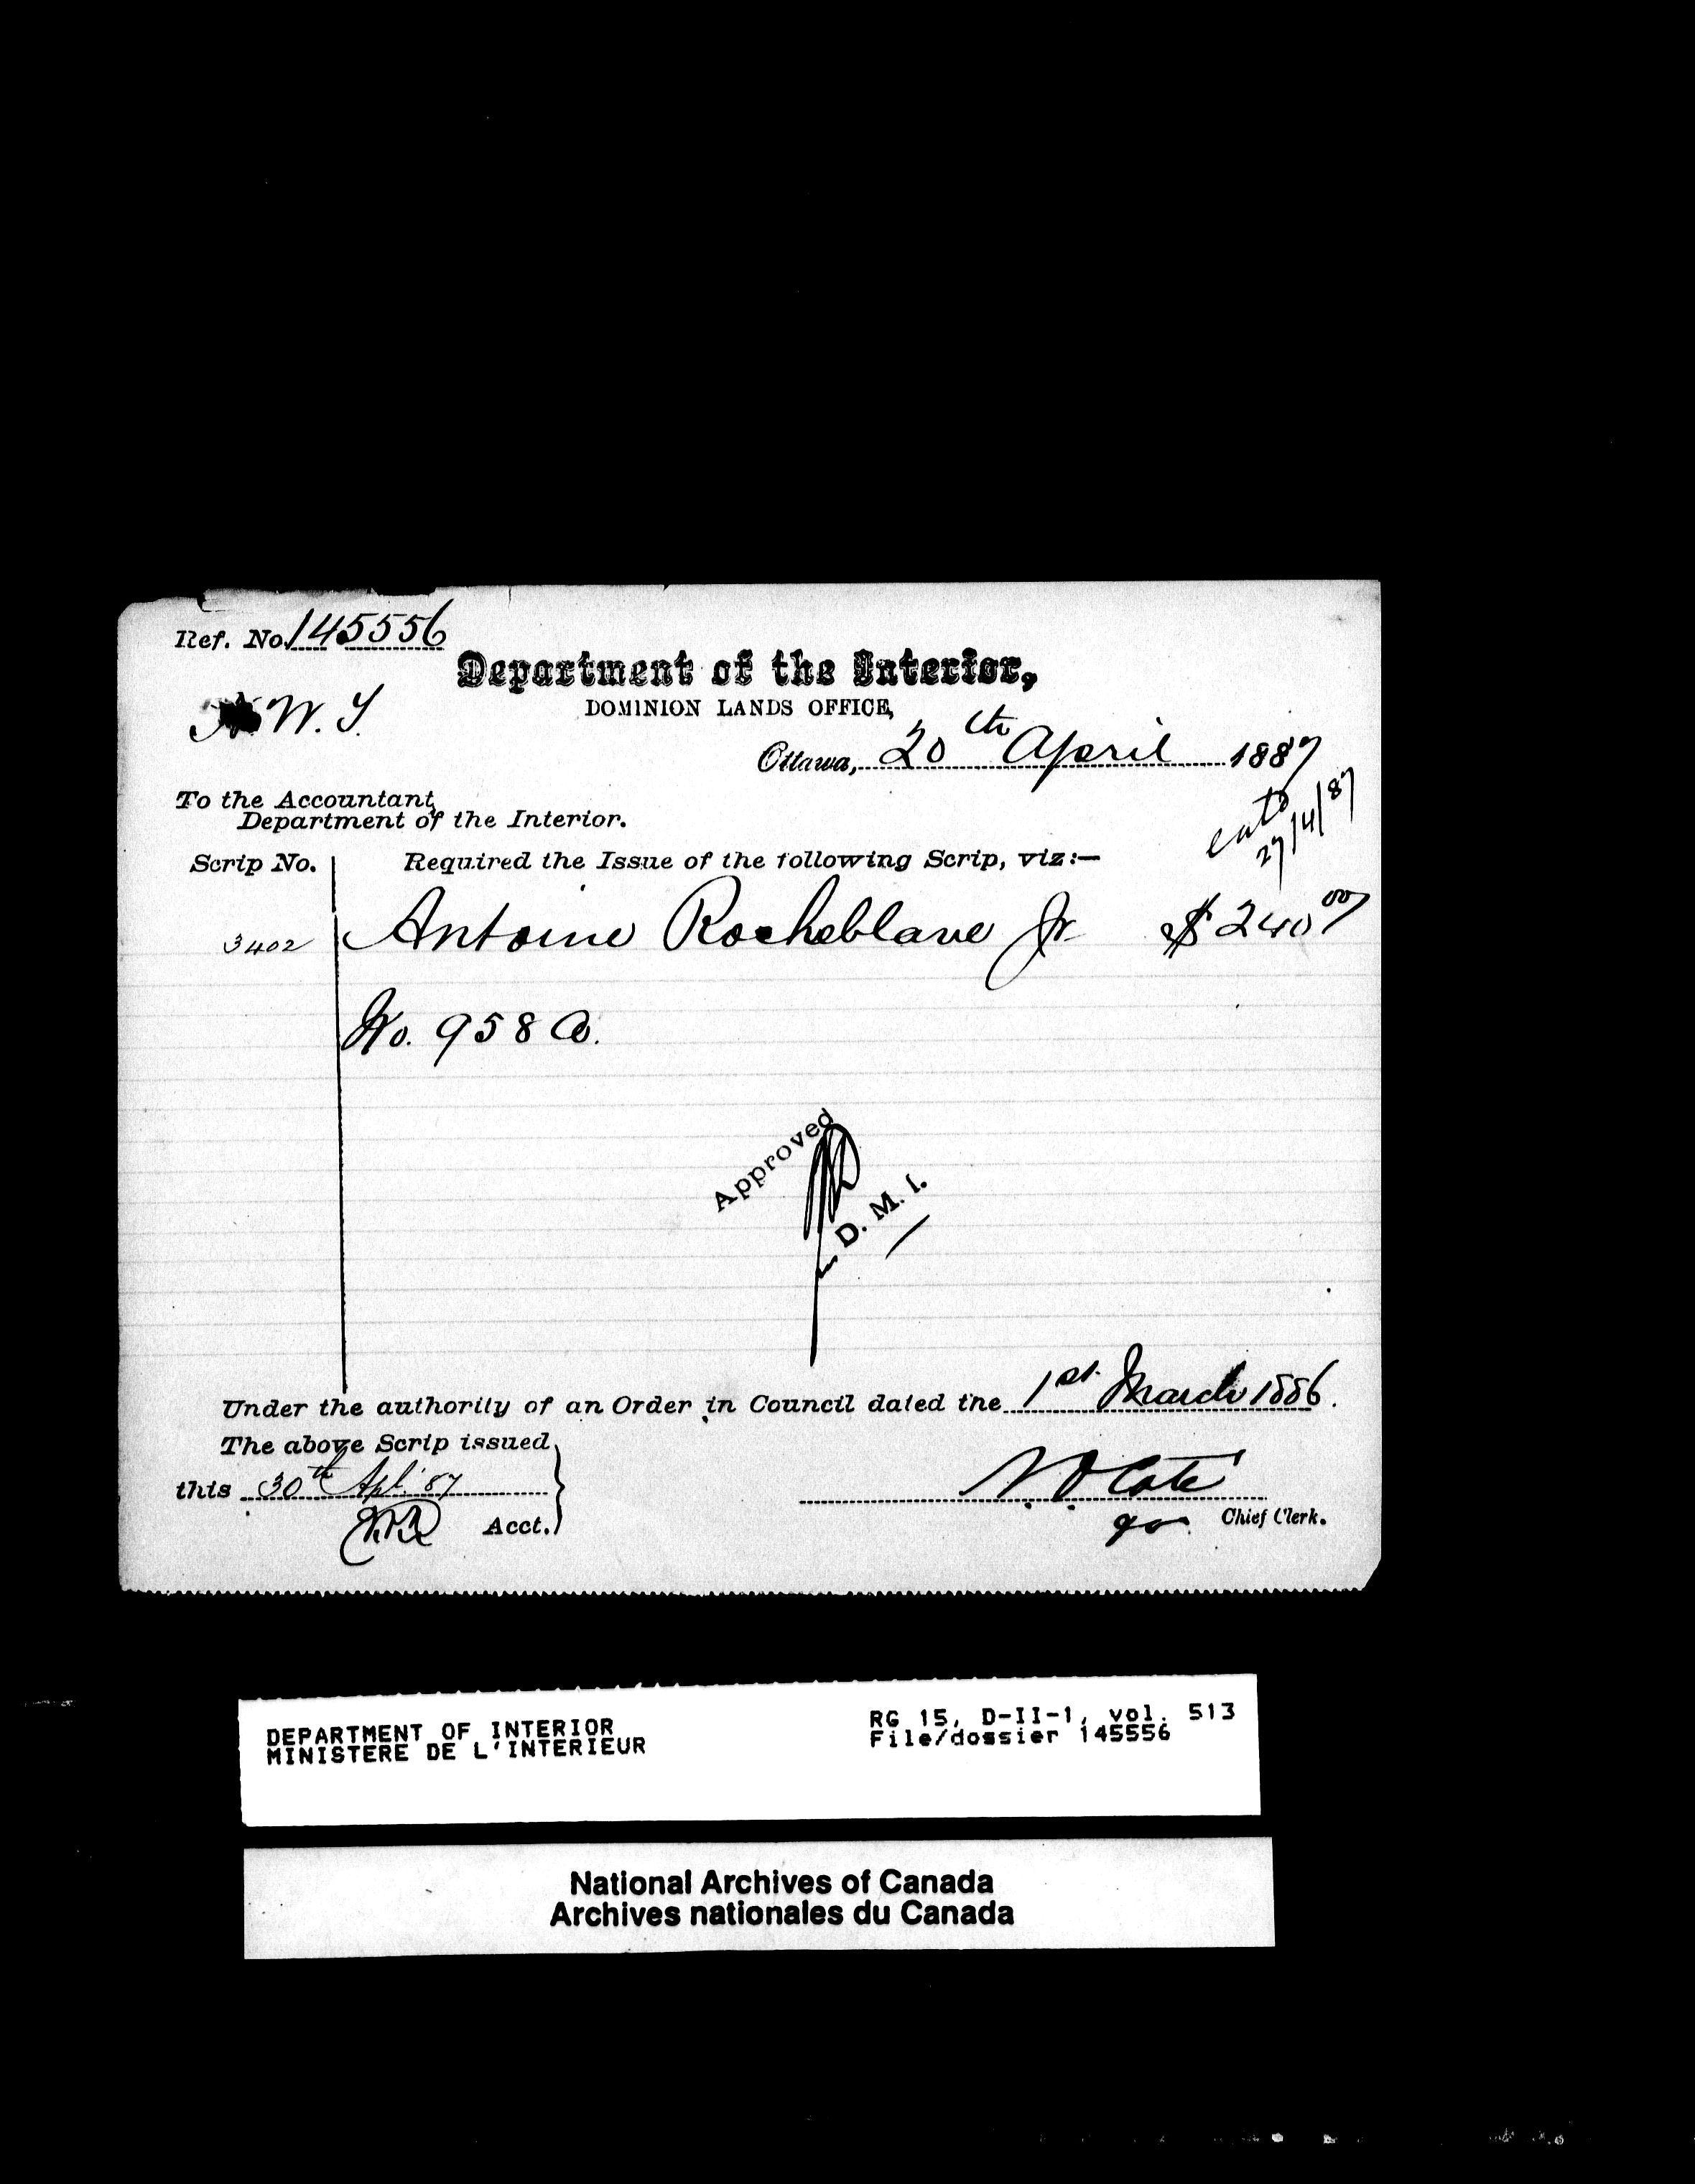 Ref. No. 145556
Department of the Interior,
N.W.T.
DOMINION LANDS OFFICE,
Ottawa, 20th April 1887
To the Accountant,
Department of the Interior.
27/4/87
Scrip No. Required the Issue of the following Scrip, viz:—
3402 Antoine Rocheblave Jr $240 00
No. 958
Approved
D. M. I.
Under the authority of an Order in Council dated the 1st March 1886.
The above Scrip issued
this 30th Apl. '87
N. O. Coté
Acct.
Chief Clerk.
DEPARTMENT OF INTERIOR
MINISTERE DE L'INTERIEUR
RG 15, D-II-1, vol. 513
File/dossier 145556
National Archives of Canada
Archives nationales du Canada